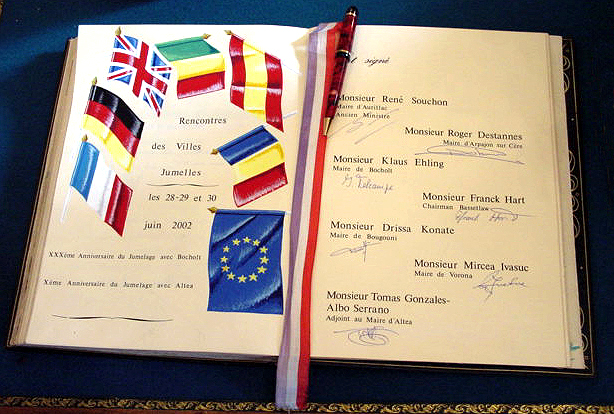 Rencontres
des Villes
Jumelles
les 28-29 et 30
juin 2002
XXXème Anniversaire du Jumelage avec Bocholt
Xème Anniversaire du Jumelage avec Altea
signé
Monsieur René Souchon
Maire d'Aurillac
Ancien Ministre
Monsieur Roger Destannes
Maire d'Arpajon sur Cère
Monsieur Klaus Ehling
Maire de Bocholt
Monsieur Franck Hart
Chairman Bassetlaw
Monsieur Drissa Konate
Maire de Bougouni
Monsieur Mircea Ivasuc
Maire de Vorona
Monsieur Tomas Gonzales-
Albo Serrano
Adjoint au Maire d'Altea